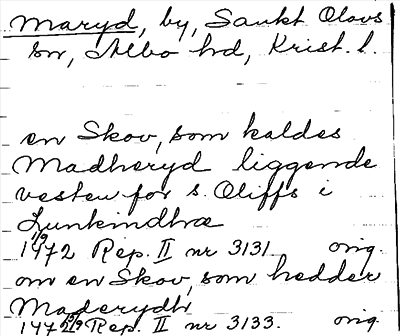 Maryd, by, Sankt Olovs
sn, Albo hd, Krist. l.
en Skov, som kaldes
Madheryd liggende
vesten for s. Oliffs i
Lunkindhræ
1/9
1472 Rep. II nr 3131. orig.
om en Skov, som hedder
Maderydh
1472 Rep. II nr 3133. orig.